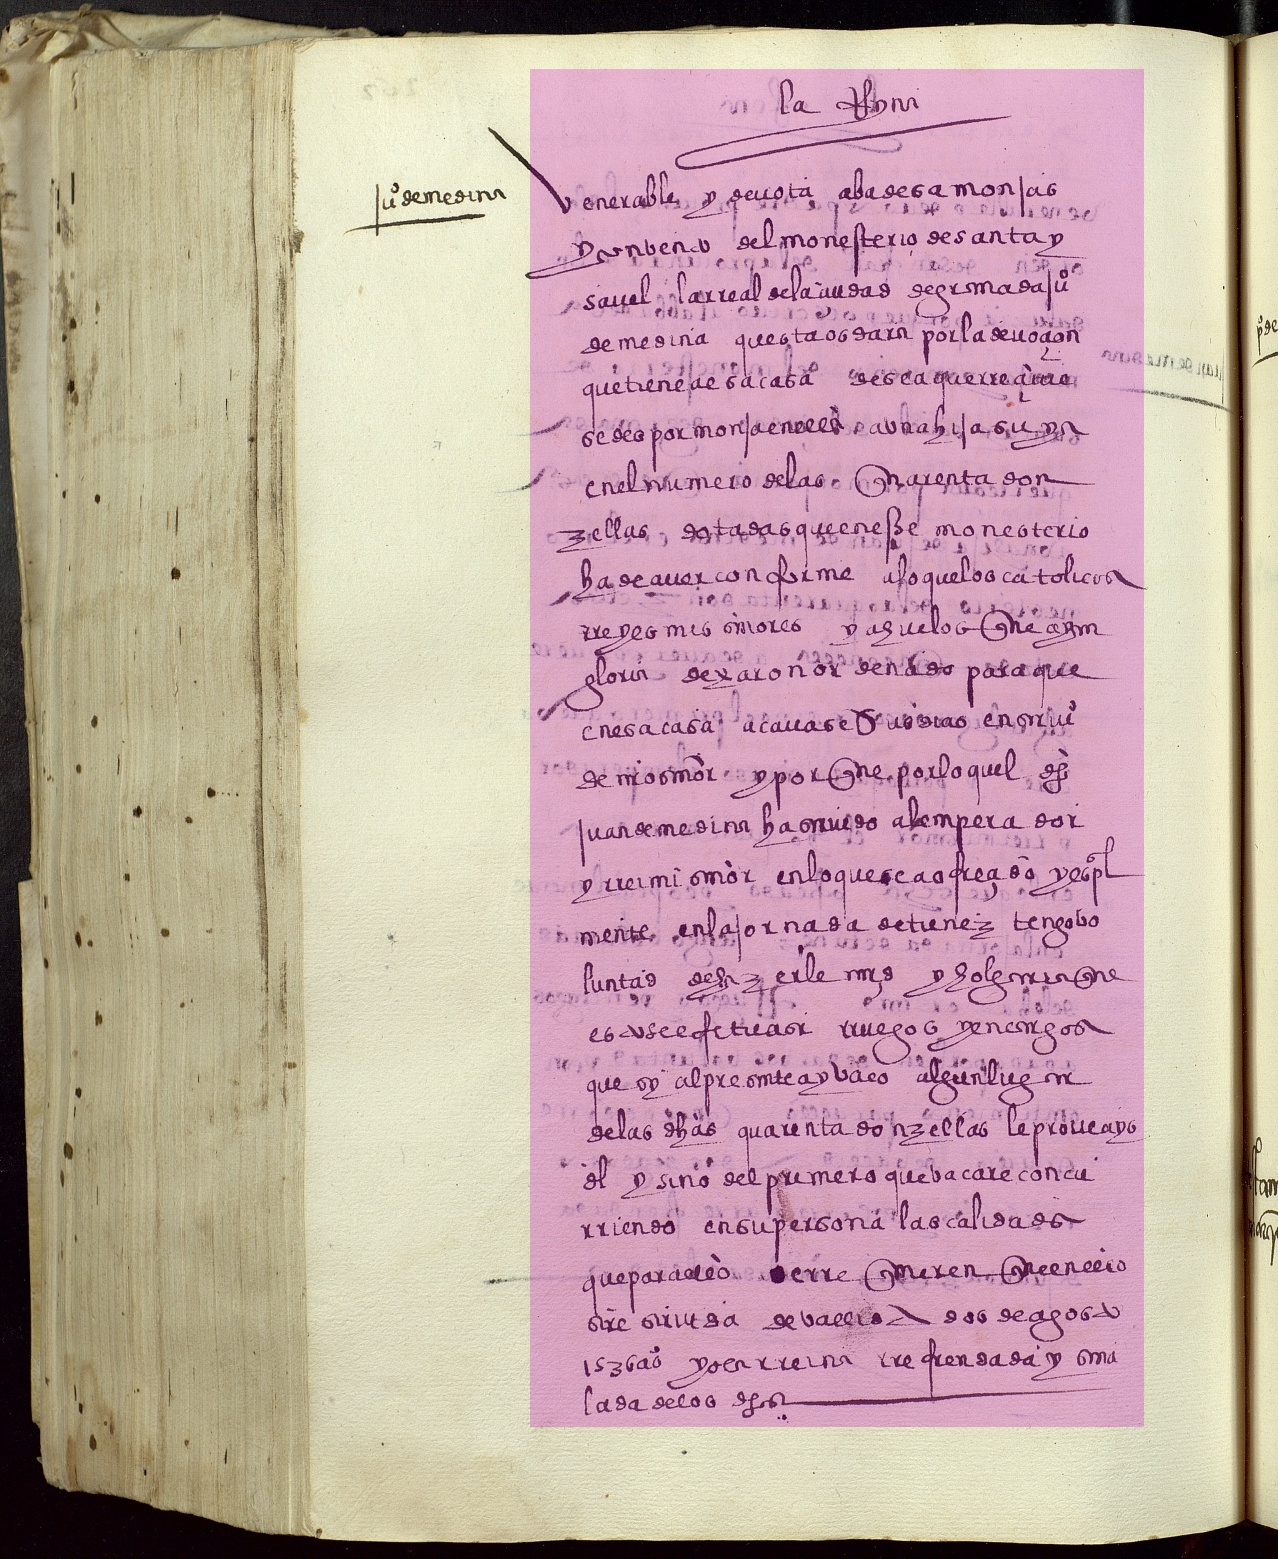 la Reyna
ju° de medina
Venerable y devota abadesa monjas
y convento del monesterio de santa y
sauel la rreal de la ciudad de granada ju°
de medina questa os dara por la deuoçion
que tiene a esa casa desea que rreçiuie
sedes por monja en ella a una hija suya
en el numero de las quarenta don
zellas dotadas que en esse monesterio
ha de auer conforme a lo que los catolicos
rreyes mis señores y aguelos que ayan
gloria dexaron ordenado para que
en esa casa acauase sus dias en serui°
de nro señor y porque por lo quel dho
juan de medina ha seruido al emperador
y rrei mi señor en lo que se a ofreçido y espeçial
mente en la jornada de tunez tengo bo
luntad de hazerle mrd y holgaria que
esto se efetuasi rruego os y encargo os
que sy al presente ay vaco algun lugar
de las dhas quarenta donzellas le proueays
del y si no del primero que bacare concu
rriendo en su persona las calidades
que para ello se rrequieren que en ello
me seruireis de valladolid a dos de agosto
1536 a° yo la rreina rrefrendada y seña
lada de los dhos